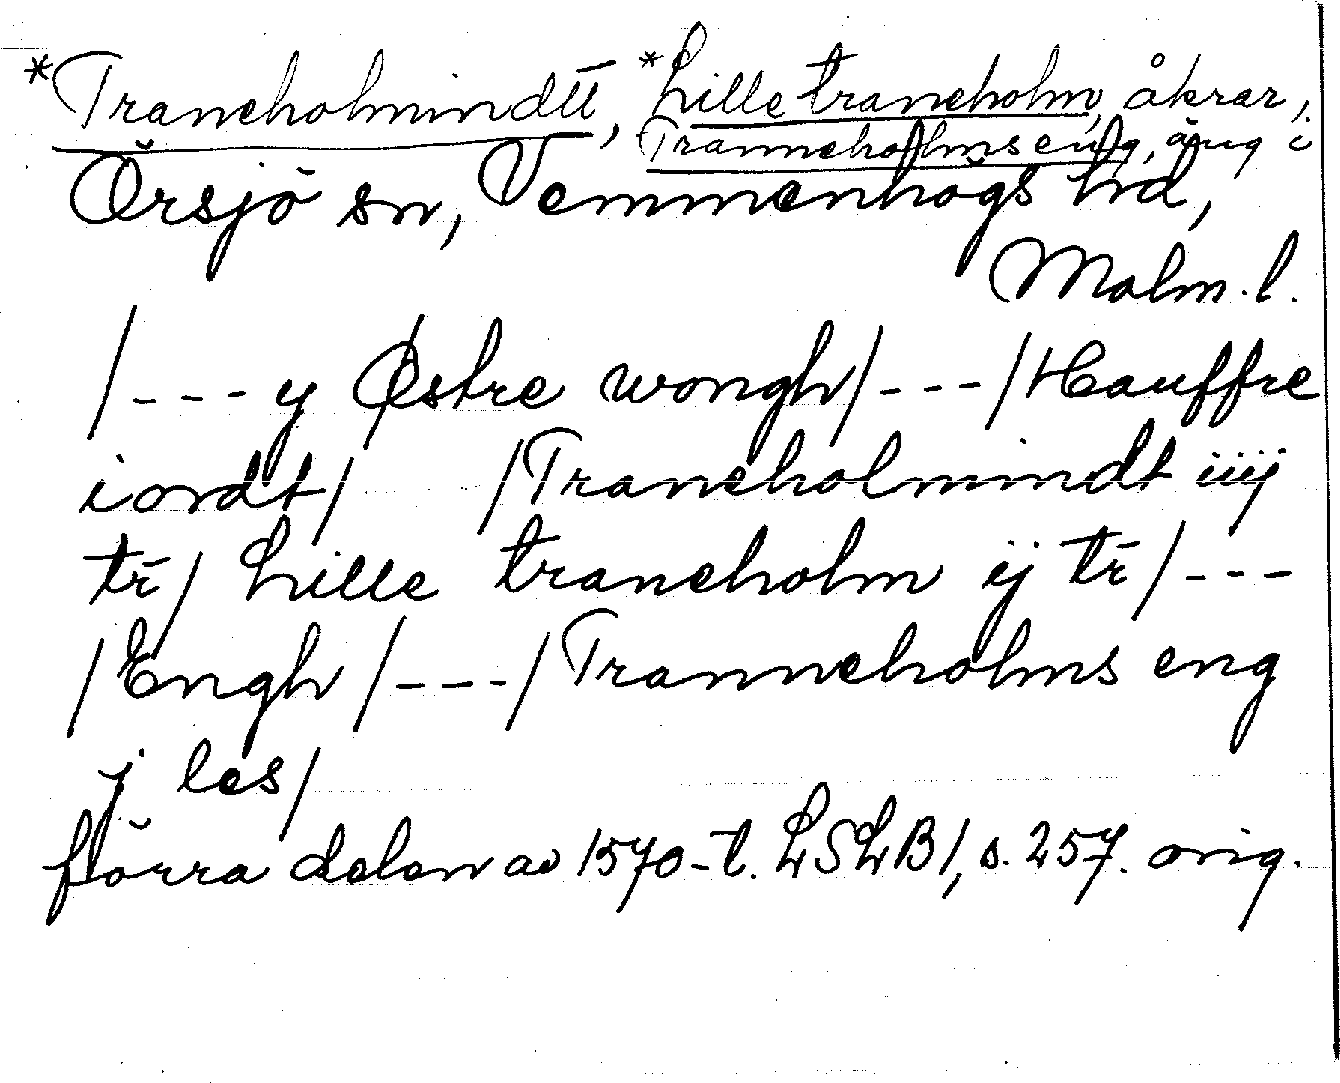 *Traneholmindtt, *Lille traneholm, åkrar,
Tranneholms eng, äng i
Örsjö sn, Vemmenhögs hd,
Malm. l.
/--- y Østre wongh/---/Hauffre
iordt/ /Traneholmindt iiij
tr̄/ Lille traneholm ij tr̄/---
/Engh/---/Tranneholms eng
j les/
förra delen av 1570-t. LSLB1, s. 257. orig.